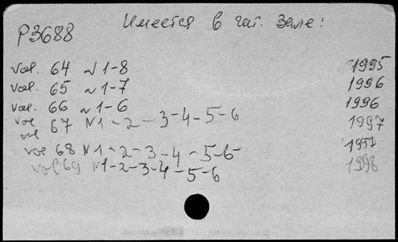 Имеется в чит. зале:
P3688
vol. 64 N 1-8 1995
vol. 65 N 1-7 1996
vol. 66 N 1-6 1996
vol 67 N1-2-3-4-5-6 1997
vol
vol 68 N1-2-3-4-5-6-
vol 69 N1-2-3-4-5-6 1998